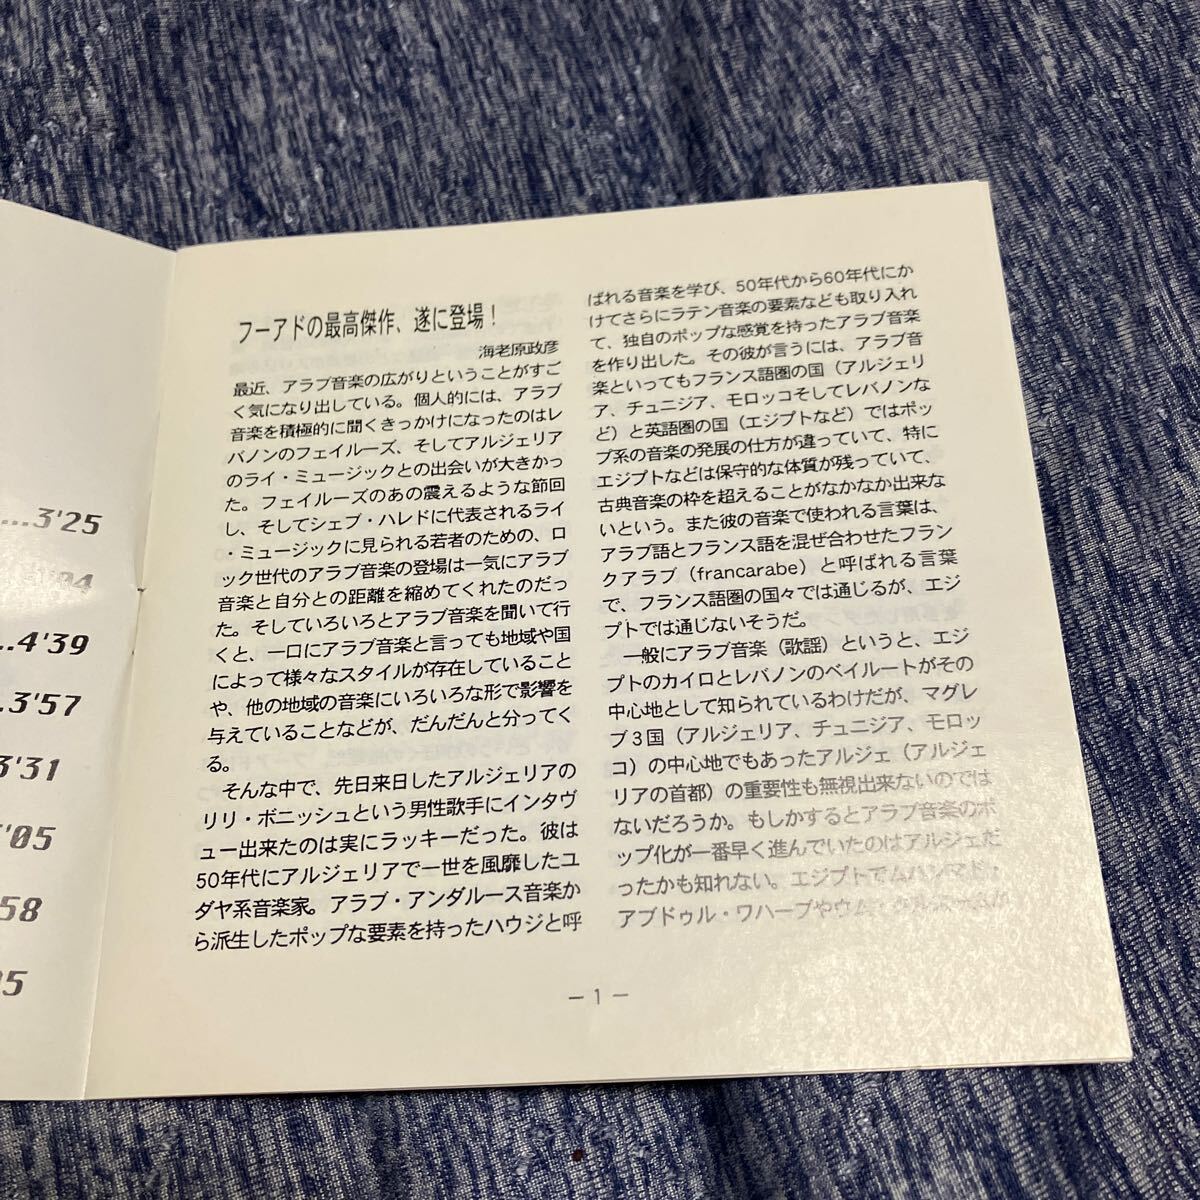 ...3'25
...4'39
.3'57
3'31
'05
58
05
フーアドの最高傑作、遂に登場!
海老原政彦
最近、アラブ音楽の広がりということがすご
く気になり出している。個人的には、アラブ
音楽を積極的に聞くきっかけになったのはレ
バノンのフェイルーズ、そしてアルジェリア
のライ・ミュージックとの出会いが大きかっ
た。フェイルーズのあの震えるような節回
し、そしてシェブ・ハレドに代表されるライ
・ミュージックに見られる若者のための、ロ
ック世代のアラブ音楽の登場は一気にアラブ
音楽と自分との距離を縮めてくれたのだっ
た。そしていろいろとアラブ音楽を聞いて行
くと、一口にアラブ音楽と言っても地域や国
によって様々なスタイルが存在していること
や、他の地域の音楽にいろいろな形で影響を
与えていることなどが、だんだんと分ってく
る。
　そんな中で、先日来日したアルジェリアの
リリ・ボニッシュという男性歌手にインタヴ
ュー出来たのは実にラッキーだった。彼は
50年代にアルジェリアで一世を風靡したユ
ダヤ系音楽家。アラブ・アンダルース音楽か
ら派生したポップな要素を持ったハウジと呼
ばれる音楽を学び、50年代から60年代にか
けてさらにラテン音楽の要素なども取り入れ
て、独自のポップな感覚を持ったアラブ音楽
を作り出した。その彼が言うには、アラブ音
楽といってもフランス語圏の国（アルジェリ
ア、チュニジア、モロッコそしてレバノンな
ど）と英語圏の国（エジプトなど）ではポッ
プ系の音楽の発展の仕方が違っていて、特に
エジプトなどは保守的な体質が残っていて、
古典音楽の枠を超えることがなかなか出来な
いという。また彼の音楽で使われる言葉は、
アラブ語とフランス語を混ぜ合わせたフラン
クアラブ（francarabe）と呼ばれる言葉
で、フランス語圏の国々では通じるが、エジ
プトでは通じないそうだ。
　一般にアラブ音楽（歌謡）というと、エジ
プトのカイロとレバノンのベイルートがその
中心地として知られているわけだが、マグレ
ブ3国（アルジェリア、チュニジア、モロッ
コ）の中心地でもあったアルジェ（アルジェ
リアの首都）の重要性も無視出来ないのでは
ないだろうか。もしかするとアラブ音楽のポ
ップ化が一番早く進んでいたのはアルジェだ
ったかも知れない。エジプトでムハンマド・
アブドゥル・ワハーブやウム・
－1－